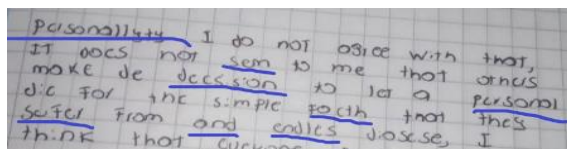 personallyty I do not agree with that,
IT does not sem to me that others
make de decssion to let a personal
die for the simple facth that they
sufer from and endles disese, I
think that